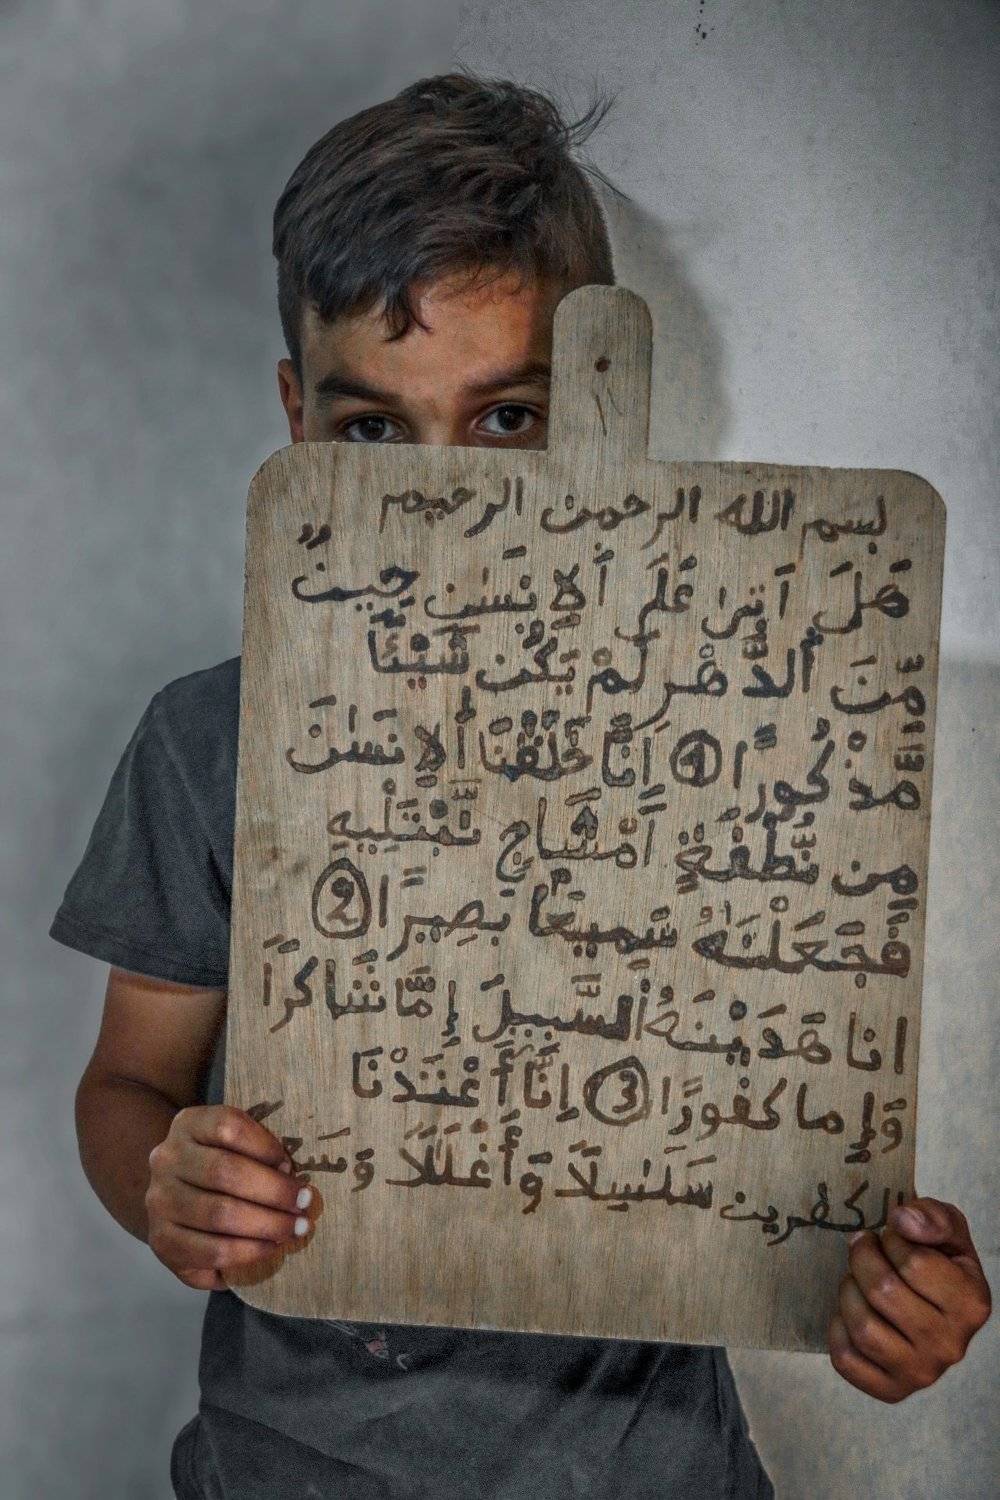 بسم الله الرحمن الرحيم
هَلَ اَتىٰ عَلَى اَلِانسَٰنِ حِينٌ
مِّنَ اَلدَّهْرِ لَمْ يَكُن شَيْئًا
مَّذْكُورًا 1 اِنَّا خَلَقْنَا اَلِانسَٰنَ
مِن نُّطْفَةٍ اَمْشَاجٍ نَّبْتَلِيهِ
فَجَعَلْنَٰهُ سَمِيعًا بَصِيرًا 2
انا هَدَيْنَٰهُ اَلسَّبِيلَ إِمَّا شَاكِرًا
وَإِما كَفُورًا 3 إِنَّا أَعْتَدْنَا
للكٰفرين سَلَٰسِلَاْ وَأَغْلَٰلًا وَسَعِ